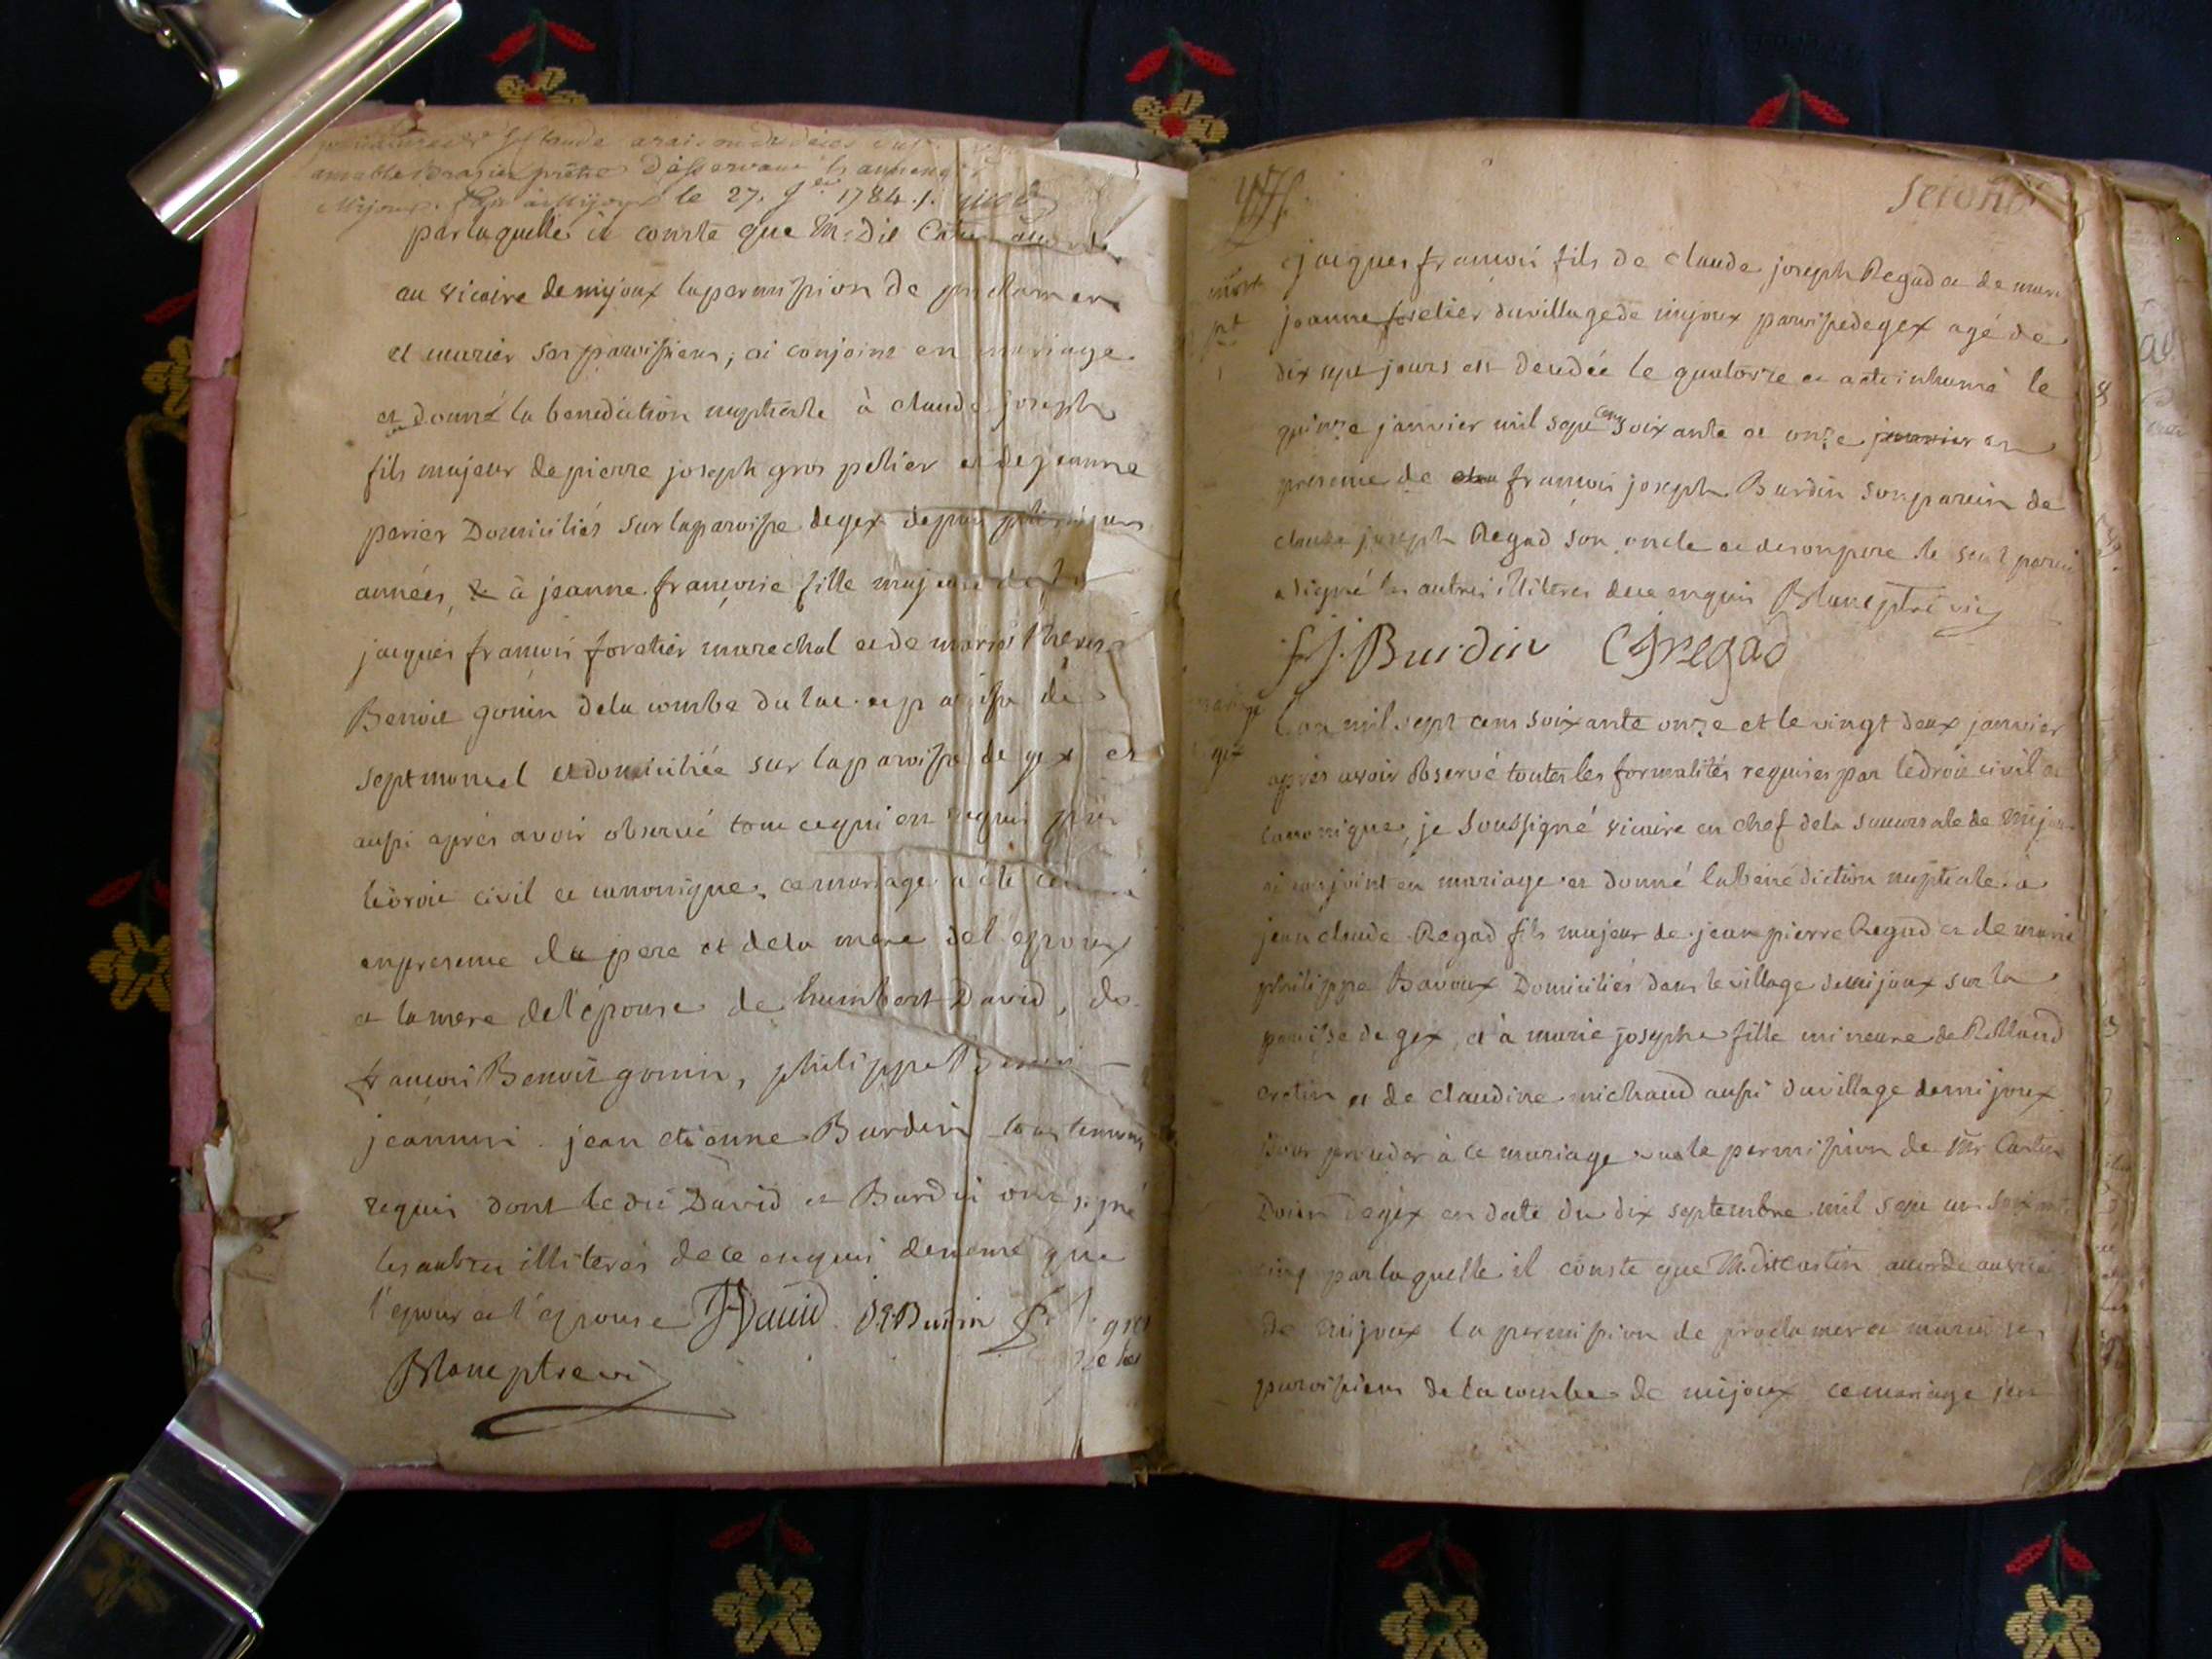 amable prêtre Desservant
Mijoux le 27. 1784.
par laquelle il conste que Mr Dit
au vicaire de mijoux la permission de proclamer
et marier ses paroissiens, ai conjoint en mariage
et donné la benediction nuptiale à claude joseph
fils majeur de pierre joseph gros pelier et de jeanne
perier Domiciliés sur la paroisse de gex depuis
années, à jeanne françoise fille majeure de
jacques françois foratier marechal et de marie therese
Benoit gonin de la combe du lac
septmoncel et domiciliée sur la paroisse de gex et
aussi après avoir observé tout ce qui est requis par
le droit civil et canonique, ce mariage a été
en presence du pere et de la mere de l'epoux
et la mere de l'épouse de humbert David, de
françois Benoit gonin, philippe Benoit
jeannin jean etienne Burdin tous temoins
requis dont le dit David et Burdin ont signé
les autres illiteres de ce enquis de meme que
l'epoux et l'epouse HDavid JE Burdin
Blanc ptre vi
second
mort
jacques françois fils de claude joseph Regad et de marie
jeanne foretier du village de mijoux paroisse de gex agé de
dix sept jours est decedé le quatorze et a eté inhumé le
quinze janvier mil sept cens soixante et onze janvier en
presence de françois joseph Burdin son parein de
claude joseph Regad son oncle et de son pere le seul parein
a signé les autres illiteres de ce enquis Blanc ptre vic
f j. Burdin CJ regad
mariage
gex
L'an mil sept cens soixante onze et le vingt deux janvier
après avoir observé toutes les formalités requises par le droit civil et
canonique, je soussigné vicaire en chef de la succursale de mijoux
ai conjoint en mariage et donné la benediction nuptiale à
jean claude Regad fils majeur de jean pierre Regad et de marie
philippe Bavoux Domiciliés dans le village de mijoux sur la
paroisse de gex, et à marie josephe fille mineure de Rolland
cretin et de claudine michaud aussi du village de mijoux
Pour proceder à ce mariage vue la permission de Mr Castin
Doien de gex en date du dix septembre mil sept cens soixante
cinq par laquelle il conste que M. dit castin accorde au vicaire
de mijoux la permission de proclamer et marier ses
paroissiens de la combe de mijoux ce mariage